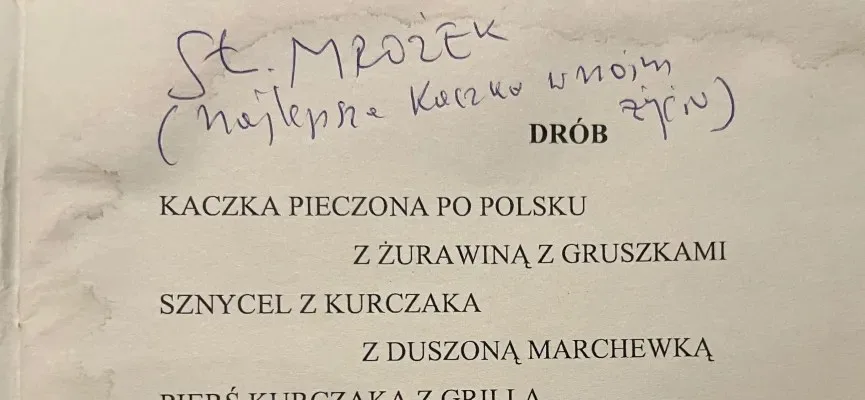 St. MROŻEK
(najlepsza kaczka w moim
życiu)
DRÓB
KACZKA PIECZONA PO POLSKU
Z ŻURAWINĄ Z GRUSZKAMI
SZNYCEL Z KURCZAKA
Z DUSZONĄ MARCHEWKĄ
PIERŚ KURCZAKA Z GRILLA